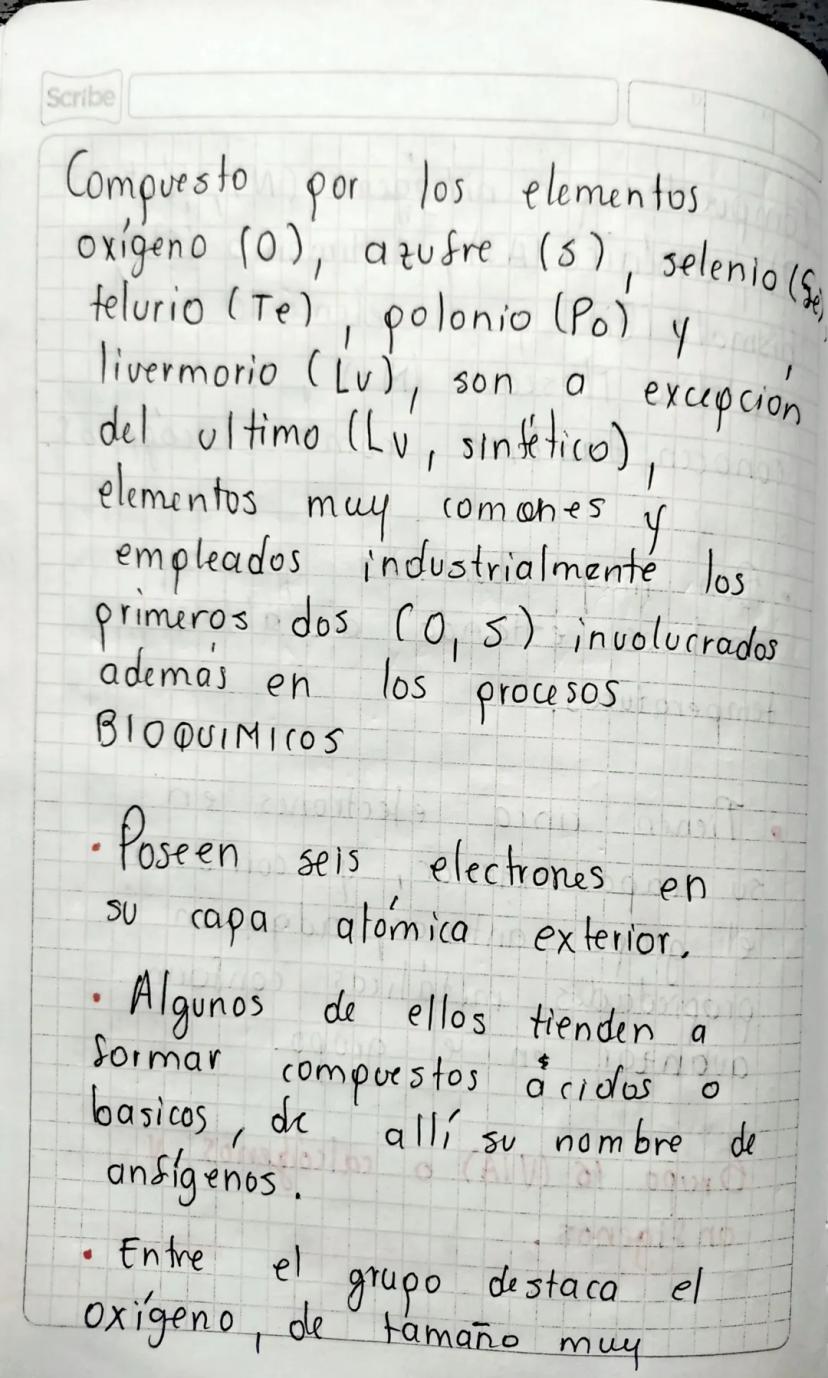 Scribe
Compuesto por los elementos
oxígeno (O), azufre (S), selenio (Se),
telurio (Te), polonio (Po) y
livermorio (Lv), son a excepción
del ultimo (Lv, sintético),
elementos muy comunes y
empleados industrialmente los
primeros dos (O, S) involucrados
además en los procesos
BIOQUIMICOS
· Poseen seis electrones en
su capa atómica exterior.
· Algunos de ellos tienden a
formar compuestos ácidos o
basicos, de allí su nombre de
anfígenos.
· Entre el grupo destaca el
oxígeno, de tamaño muy